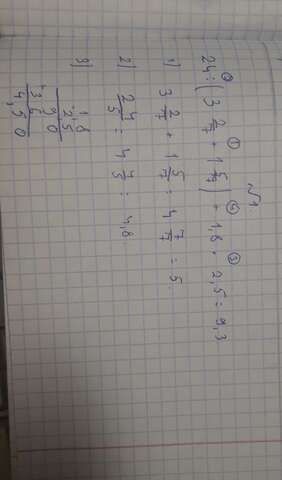 №1
24 : (3 2/7 + 1 5/7) + 1,8 · 2,5 = 9,3
② ① ④ ③
1) 3 2/7 + 1 5/7 = 4 7/7 = 5
2) 24/5 = 4 4/5 = 4,8
3) 1,8
2,5
90
36
4,50